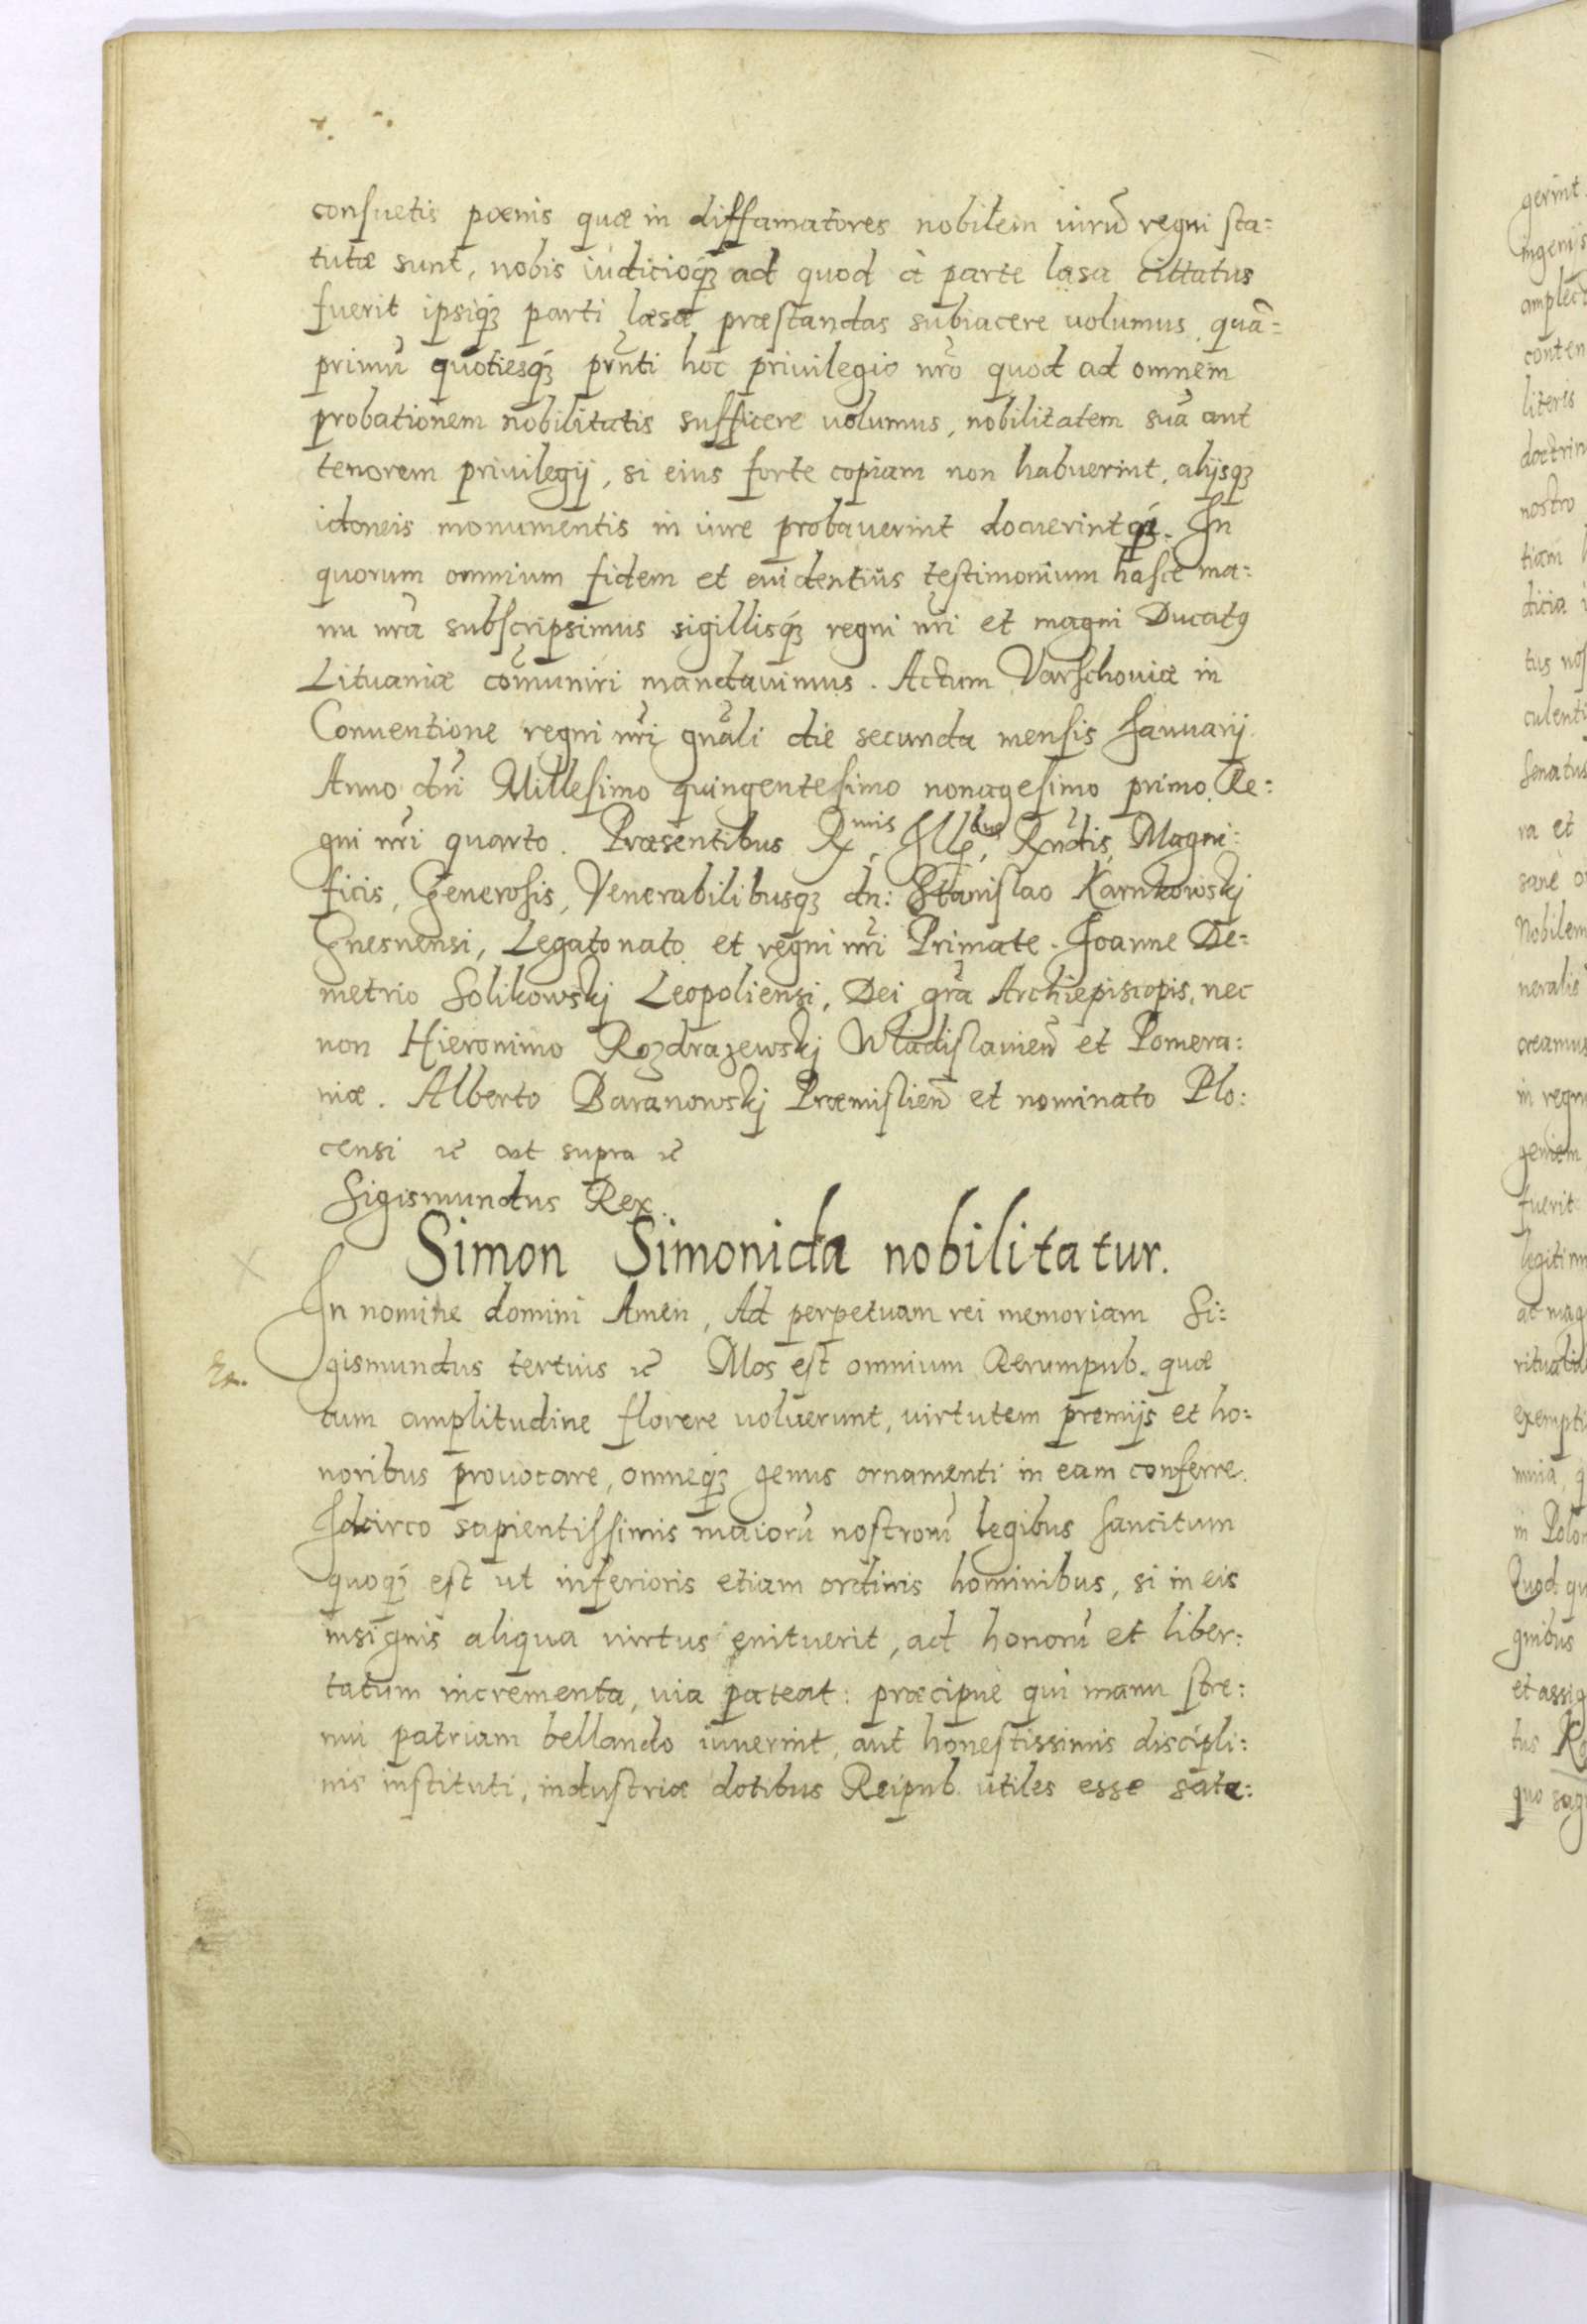 consuetis pœnis quæ in diffamatores nobilem virũ regni sta:
tutæ sunt, nobis iudicioq́ꝫ ad quod à parte læsa cittatus
fuerit ipsiq́ꝫ parti læsæ præstandas subiacere volumus, quã:
primũ quotiesq́ꝫ pr̃nti hoc privilegio nr̃o quod ad omnem
probationem nobilitatis sufficere volumus, nobilitatem suã aut
tenorem privilegij, si eius forte copiam non habuerint, alijsqꝫ
idoneis monumentis in iure probaverint docuerintq́ꝫ. In
quorum omnium fidem et evidentius testimonium hasce ma:
nu nr̃a subscripsimus sigillisq́ꝫ regni nr̃i et magni Ducatꝰ
Lituaniæ cõmuniri mandavimus. Actum Varschoviæ in
Conventione regni nr̃i gñali die secunda mensis Januarij
Anno dñi Millesimo quingentesimo nonagesimo primo Re:
gni nr̃i quarto. Præsentibus R^mis, Ill^bus, Rñdis, Magni:
ficis, Generosis, Venerabilibusqꝫ dn: Stanislao Karnkowskj
Gnesnensi, Legato nato et regni nr̃i Primate. Joanne De:
metrio Solikowskj Leopoliensi, Dei gr̃a Archiepiscopis, nec
non Hieronimo Rozdrazewskj Wladislavieñ et Pomera:
niæ. Alberto Baranowskj Præmislieñ et nominato Plo:
censi ꝛc̃ ut supra ꝛc̃
Sigismundus Rex.
Simon Simonida nobilitatur.
In nomine domini Amen, Ad perpetuam rei memoriam Si:
gismundus tertius ꝛc̃ Mos est omnium Rerumpub. quæ
cum amplitudine florere voluerunt, virtutem premijs et ho:
noribus provocare, omneq́ꝫ genus ornamenti in eam conferre.
Idcirco sapientissimis maiorũ nostrorũ legibus sancitum
quoq́ꝫ est ut inferioris etiam ordinis hominibus, si in eis
insignis aliqua virtus enituerit, ad honorũ et liber:
tatum incrementa, via pateat: præcipuè qui manu stre:
nui patriam bellando iuverint, aut honestissimis discipli:
nis instituti, industriæ dotibus Reipub. utiles esse sata:
gerint.
ingenijs
amplect
conten
literis
doctrin
nostro
tiam
dicia
tus nos
culenti
Senatus
ra et
sanè
Nobilem
neralis
creamus
in regn
geniem
fuerit
legitim
ac mag
ritualiæ
exempti
mnia, q
in Polon
Quod qu
gnibus
et assig
tus
quo sagi